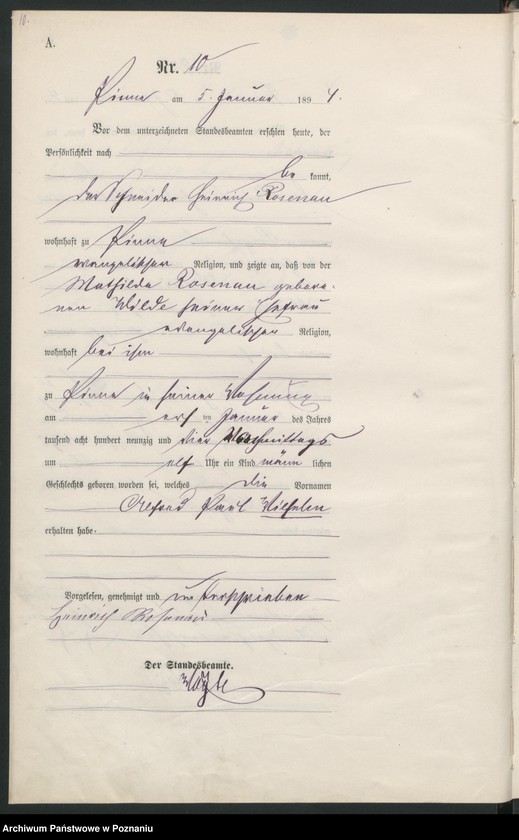 10.
A.
Nr. 10
Pinne am 5. Januar 1894.
Vor dem unterzeichneten Standesbeamten erschien heute, der
Persönlichkeit nach
be kannt,
der Schneider Heinrich Rosenau
wohnhaft zu Pinne
evangelischer Religion, und zeigte an, daß von der
Mathilde Rosenau gebore-
nen Wilde seiner Ehefrau
evangelischer Religion,
wohnhaft bei ihm
zu Pinne in seiner Wohnung
am Januar des Jahres
tausend acht hundert neunzig und vier Vormittags
um elf Uhr ein Kind männ lichen
Geschlechts geboren worden sei, welches die Vornamen
Alfred Paul Wilhelm
erhalten habe.
Vorgelesen, genehmigt und unterschrieben
Heinrich Rosenau
Der Standesbeamte.
Archiwum Państwowe w Poznaniu
szukajwarchiwach.gov.pl